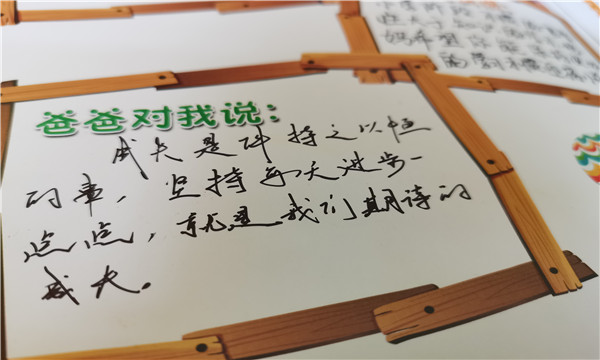 爸爸对我说：
成长是件持之以恒
的事，坚持每天进步一
点点，就是我们期待的
成长。
妈希望你